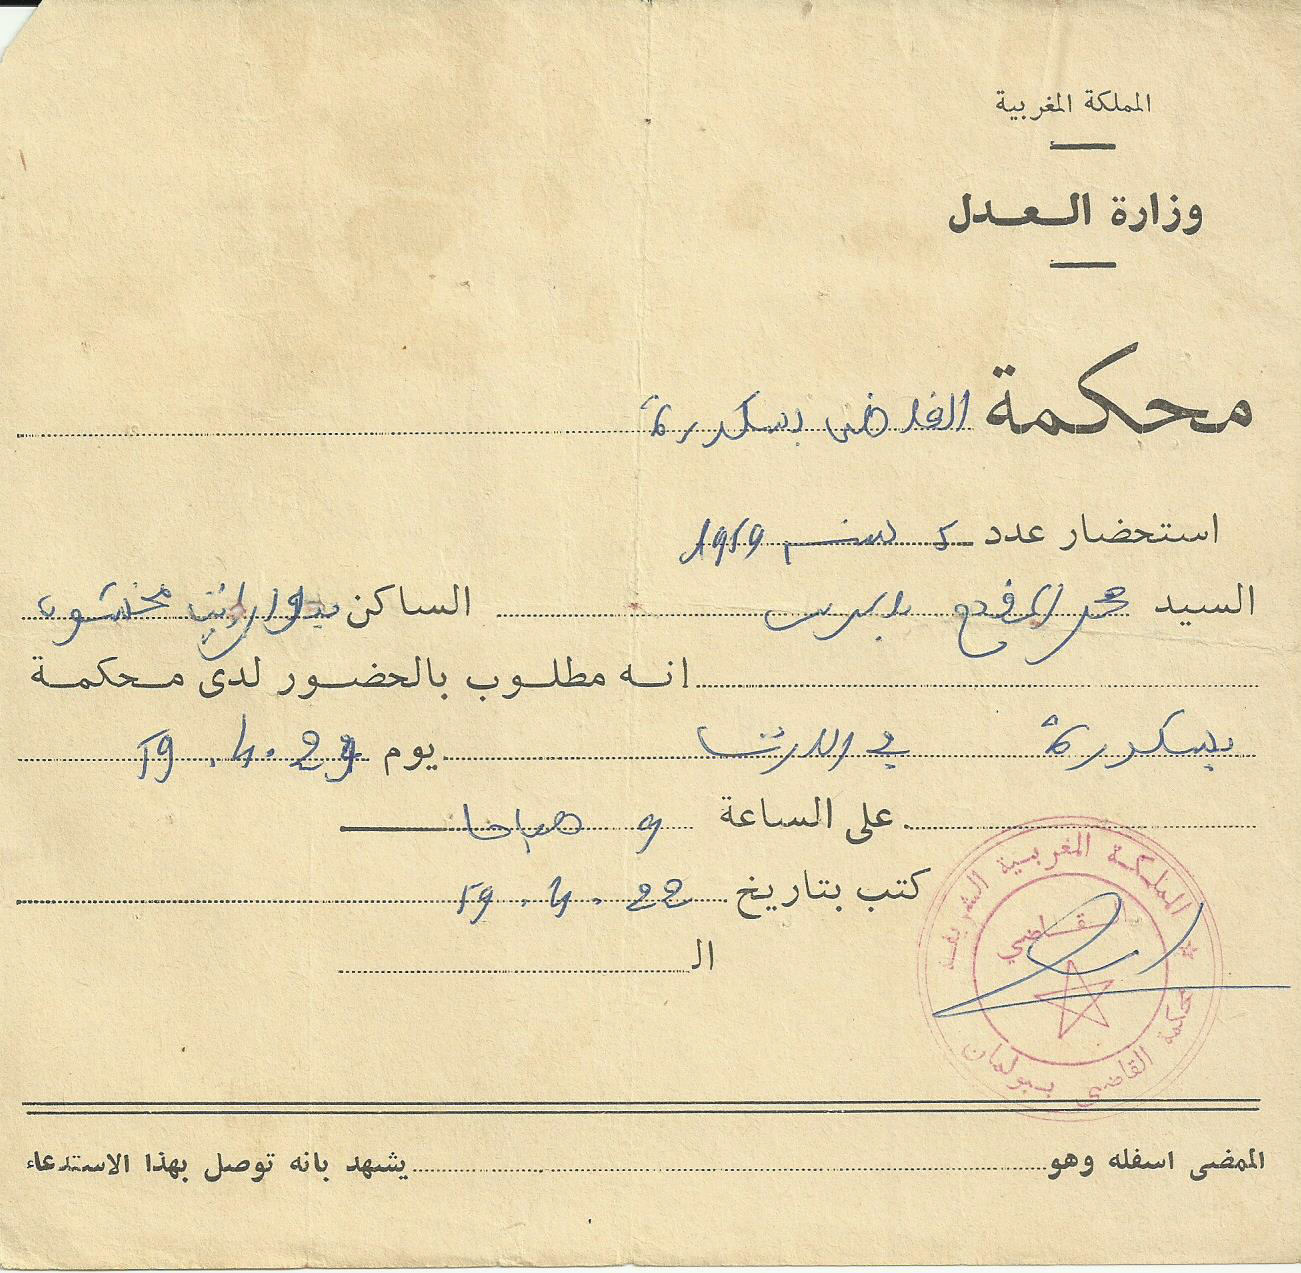 المملكة المغربية
وزارة العدل
محكمة القاضى بسكورة
استحضار عدد 5 سنة 1959
السيد محمد الساكن بدوار
انه مطلوب بالحضور لدى محكمة
بسكورة في يوم 29.4.59
على الساعة 9 صباحا
كتب بتاريخ 22.4.59
ال
المملكة المغربية الشريفة
محكمة القاضي ببولمان
القاضي
الممضى اسفله وهو يشهد بانه توصل بهذا الاستدعاء